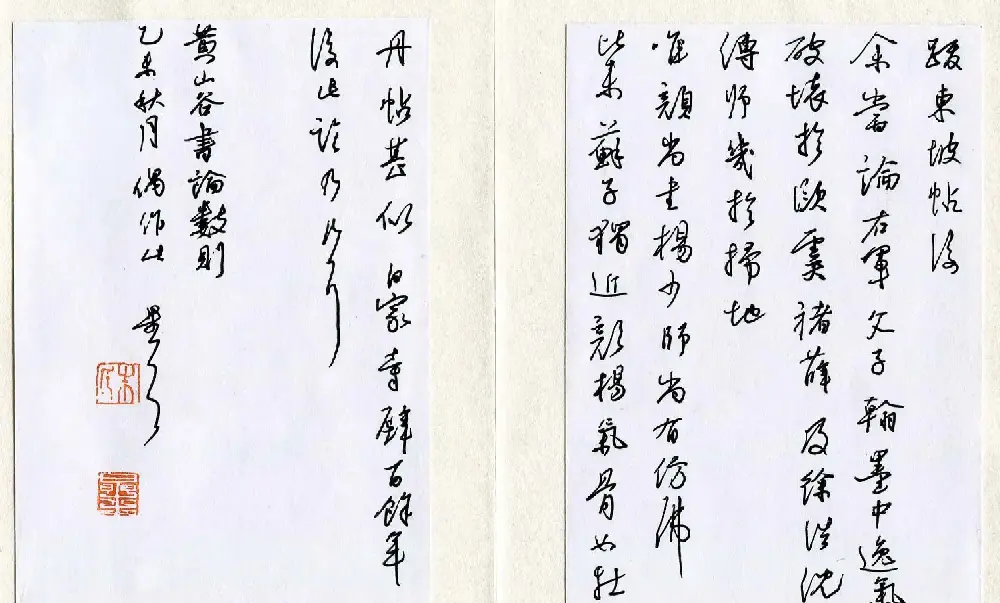 跋東坡帖後
余嘗論右軍父子翰墨中逸氣
破壞於歐虞褚薛及徐浩沈
傳師幾於掃地
唯顏尚書楊少師尚有仿佛
比來蘇子獨近顏楊氣骨如牡
丹帖甚似白家寺壁百餘年
後此論乃行
黃山谷書論數則
乙未秋月偶作此